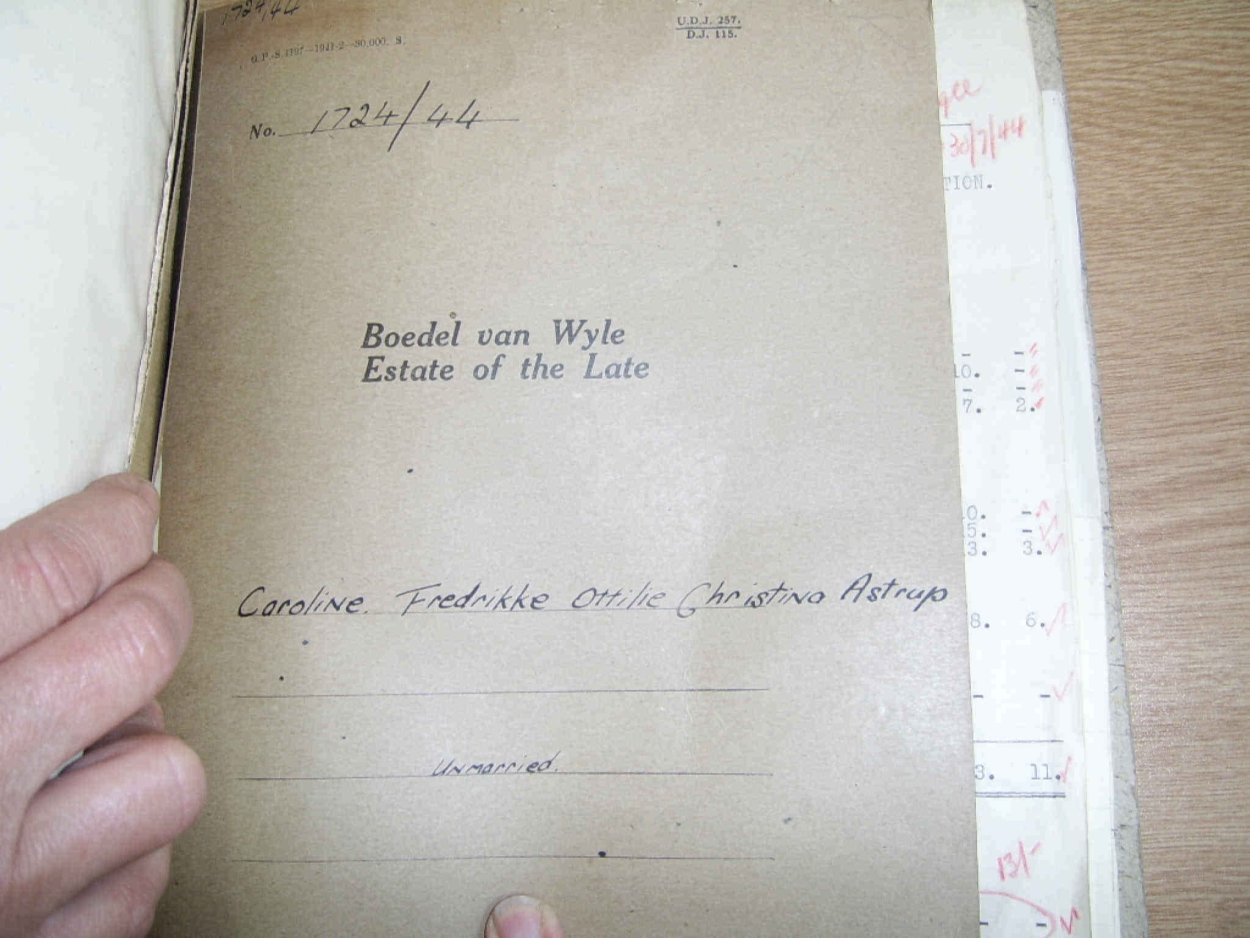 1724/44
U.D.J. 257.
D.J. 115.
G.P.-S.1197—1941-2—30,000. S.
No. 1724/44
30/7/44
TION.
Boedel van Wyle
Estate of the Late
- -
10. -
- -
7. 2.
0. -
5. -
3. 3.
Caroline. Fredrikke Ottilie Christina Astrup
8. 6.
- -
Unmarried.
3. 11.
13/-
- -